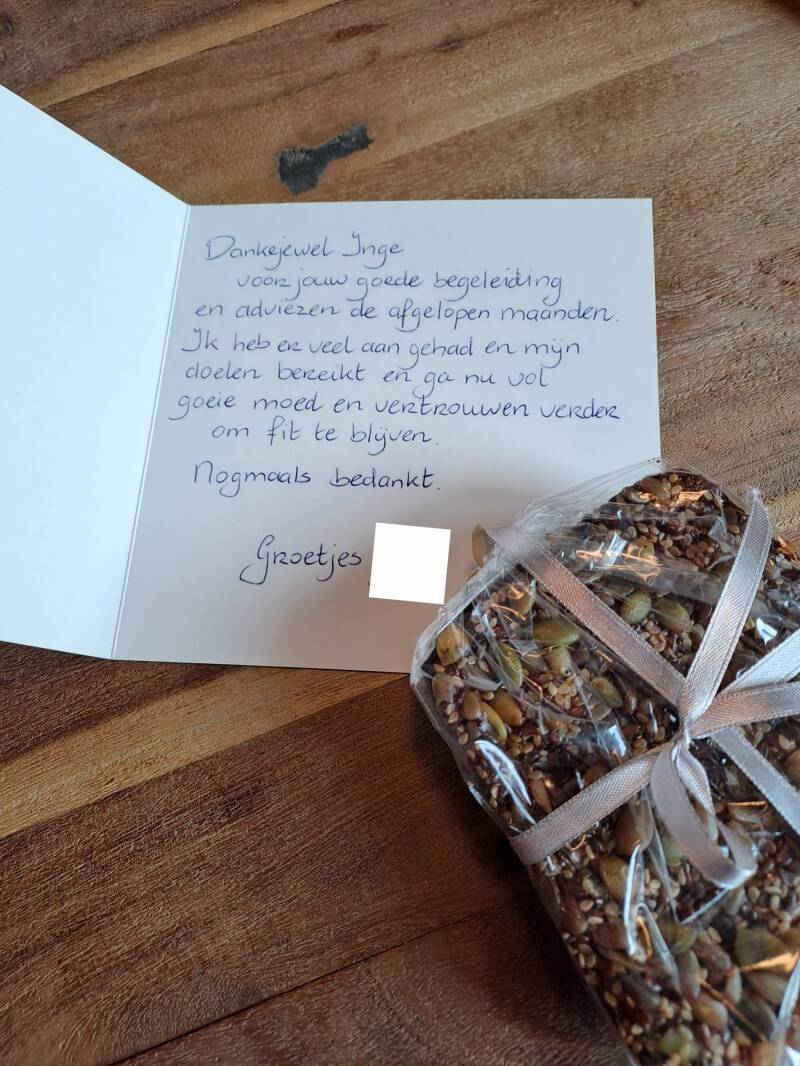 Dankejewel Inge
voor jouw goede begeleiding
en adviezen de afgelopen maanden.
Ik heb er veel aan gehad en mijn
doelen bereikt en ga nu vol
goeie moed en vertrouwen verder
om fit te blijven.
Nogmaals bedankt.
Groetjes